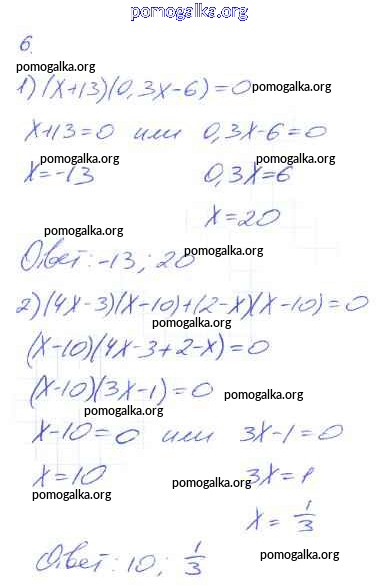 pomogalka.org
6.
pomogalka.org
1) (x+13)(0,3x-6)=0 pomogalka.org
x+13=0 или 0,3x-6=0
pomogalka.org pomogalka.org
x=-13 0,3x=6
x=20
pomogalka.org
pomogalka.org
Ответ: -13; 20
2) (4x-3)(x-10)+(2-x)(x-10)=0
pomogalka.org
(x-10)(4x-3+2-x)=0
pomogalka.org
(x-10)(3x-1)=0 pomogalka.org
pomogalka.org
x-10=0 или 3x-1=0
x=10 3x=1
pomogalka.org pomogalka.org
x=1/3
Ответ: 10; 1/3
pomogalka.org pomogalka.org